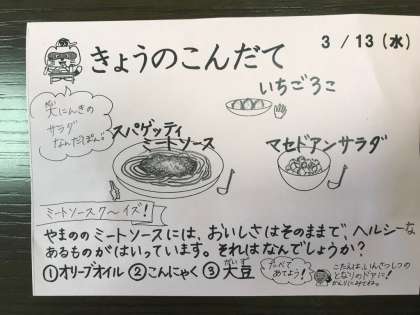 きょうのこんだて
3/13(水)
いちごろこ
大にんきの
サラダ
なんだぽん♪
スパゲッティ
ミートソース
マセドアンサラダ
ミートソースク〜イズ!
やまののミートソースには、おいしさはそのままで、ヘルシーな
あるものがはいっています。それはなんでしょうか?
①オリーブオイル ②こんにゃく ③大豆
だいず
たべて
あてよう!
こたえは、いんさつしつの
となりのドアに!